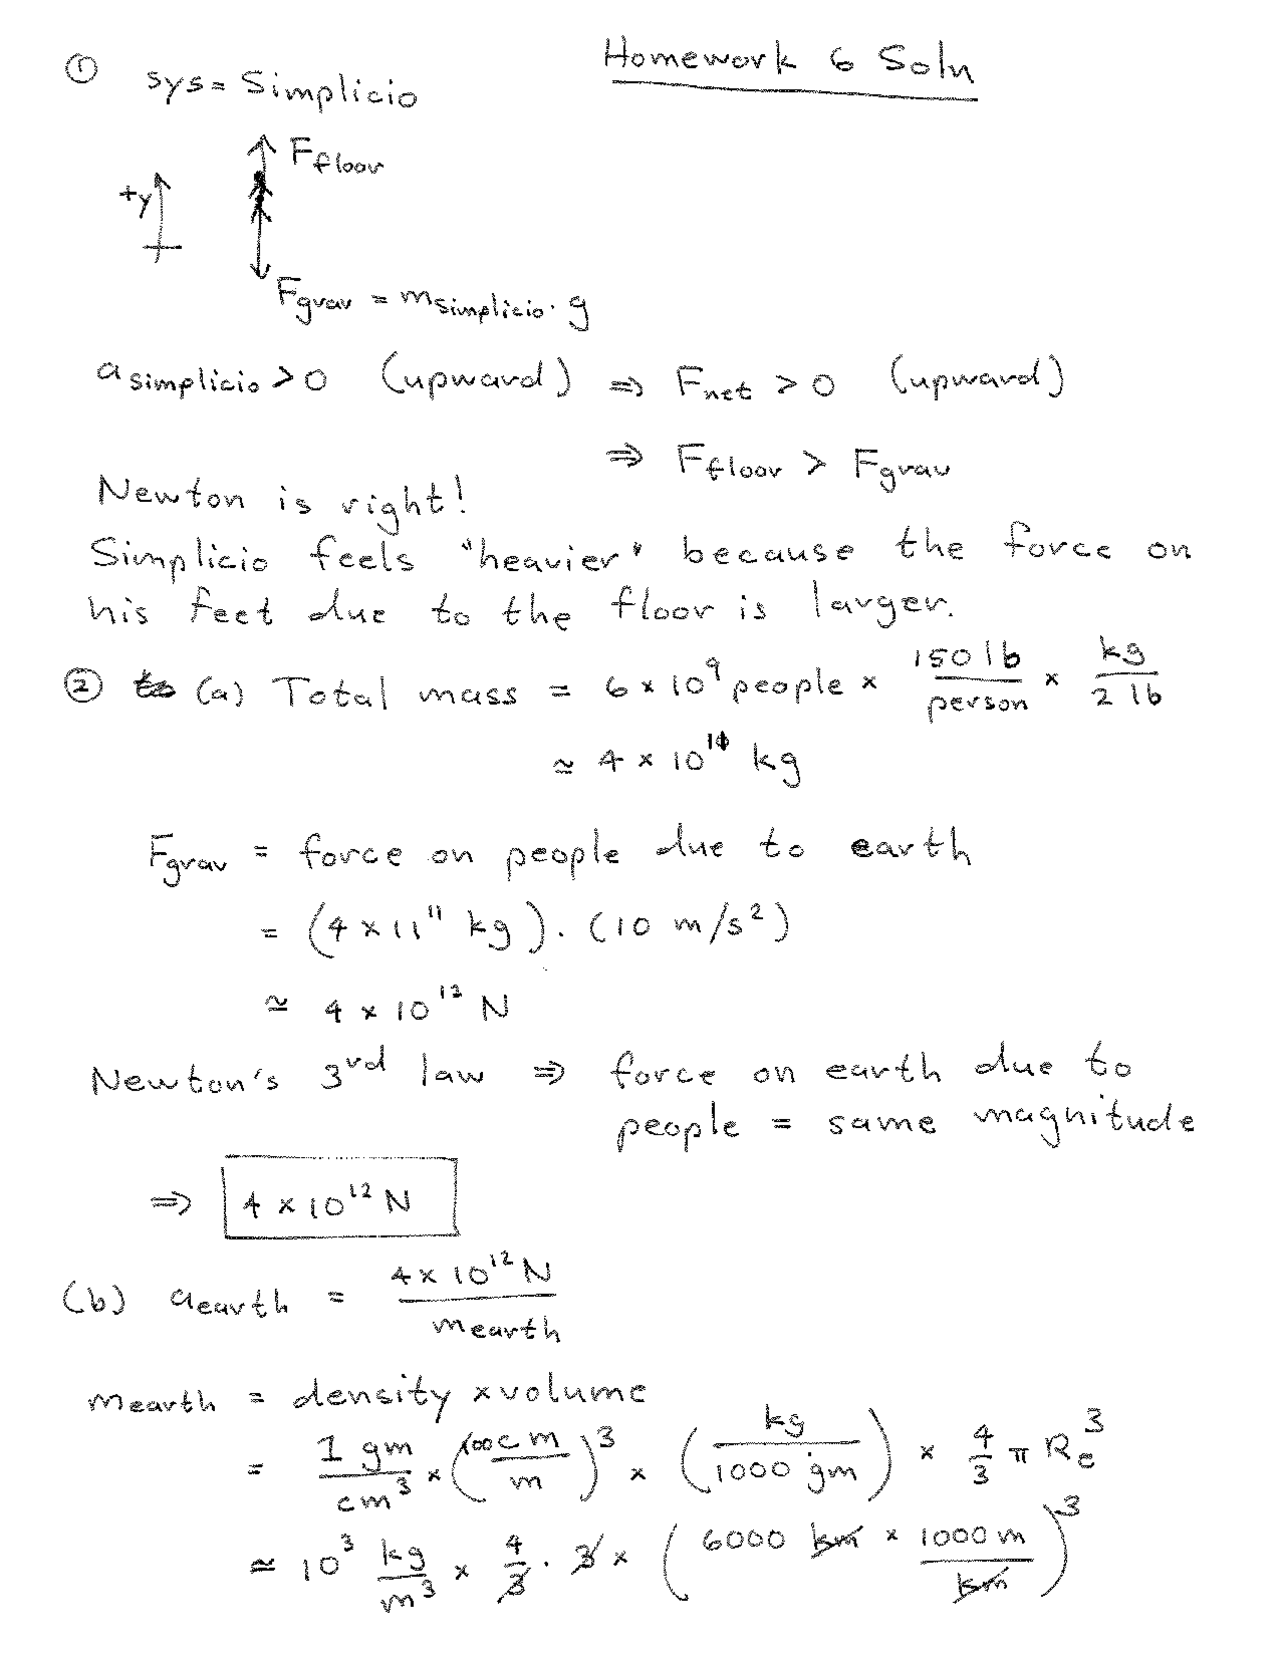 Homework 6 Soln
① sys = Simplicio
F floor
+y
F grav = m simplicio · g
a simplicio > 0 (upward) ⇒ F net > 0 (upward)
⇒ F floor > F grav
Newton is right!
Simplicio feels "heavier" because the force on
his feet due to the floor is larger.
② (a) Total mass = 6 × 10⁹ people × 150 lb / person × kg / 2 lb
≃ 4 × 10¹¹ kg
F grav = force on people due to earth
= (4 × 11¹¹ kg) · (10 m/s²)
≃ 4 × 10¹² N
Newton's 3rd law ⇒ force on earth due to
people = same magnitude
⇒ 4 × 10¹² N
(b) a earth = 4 × 10¹² N / m earth
m earth = density × volume
= 1 gm / cm³ × (100 cm / m)³ × (kg / 1000 gm) × 4/3 π Re³
≃ 10³ kg / m³ × 4/3 · 3 × (6000 km × 1000 m / km)³